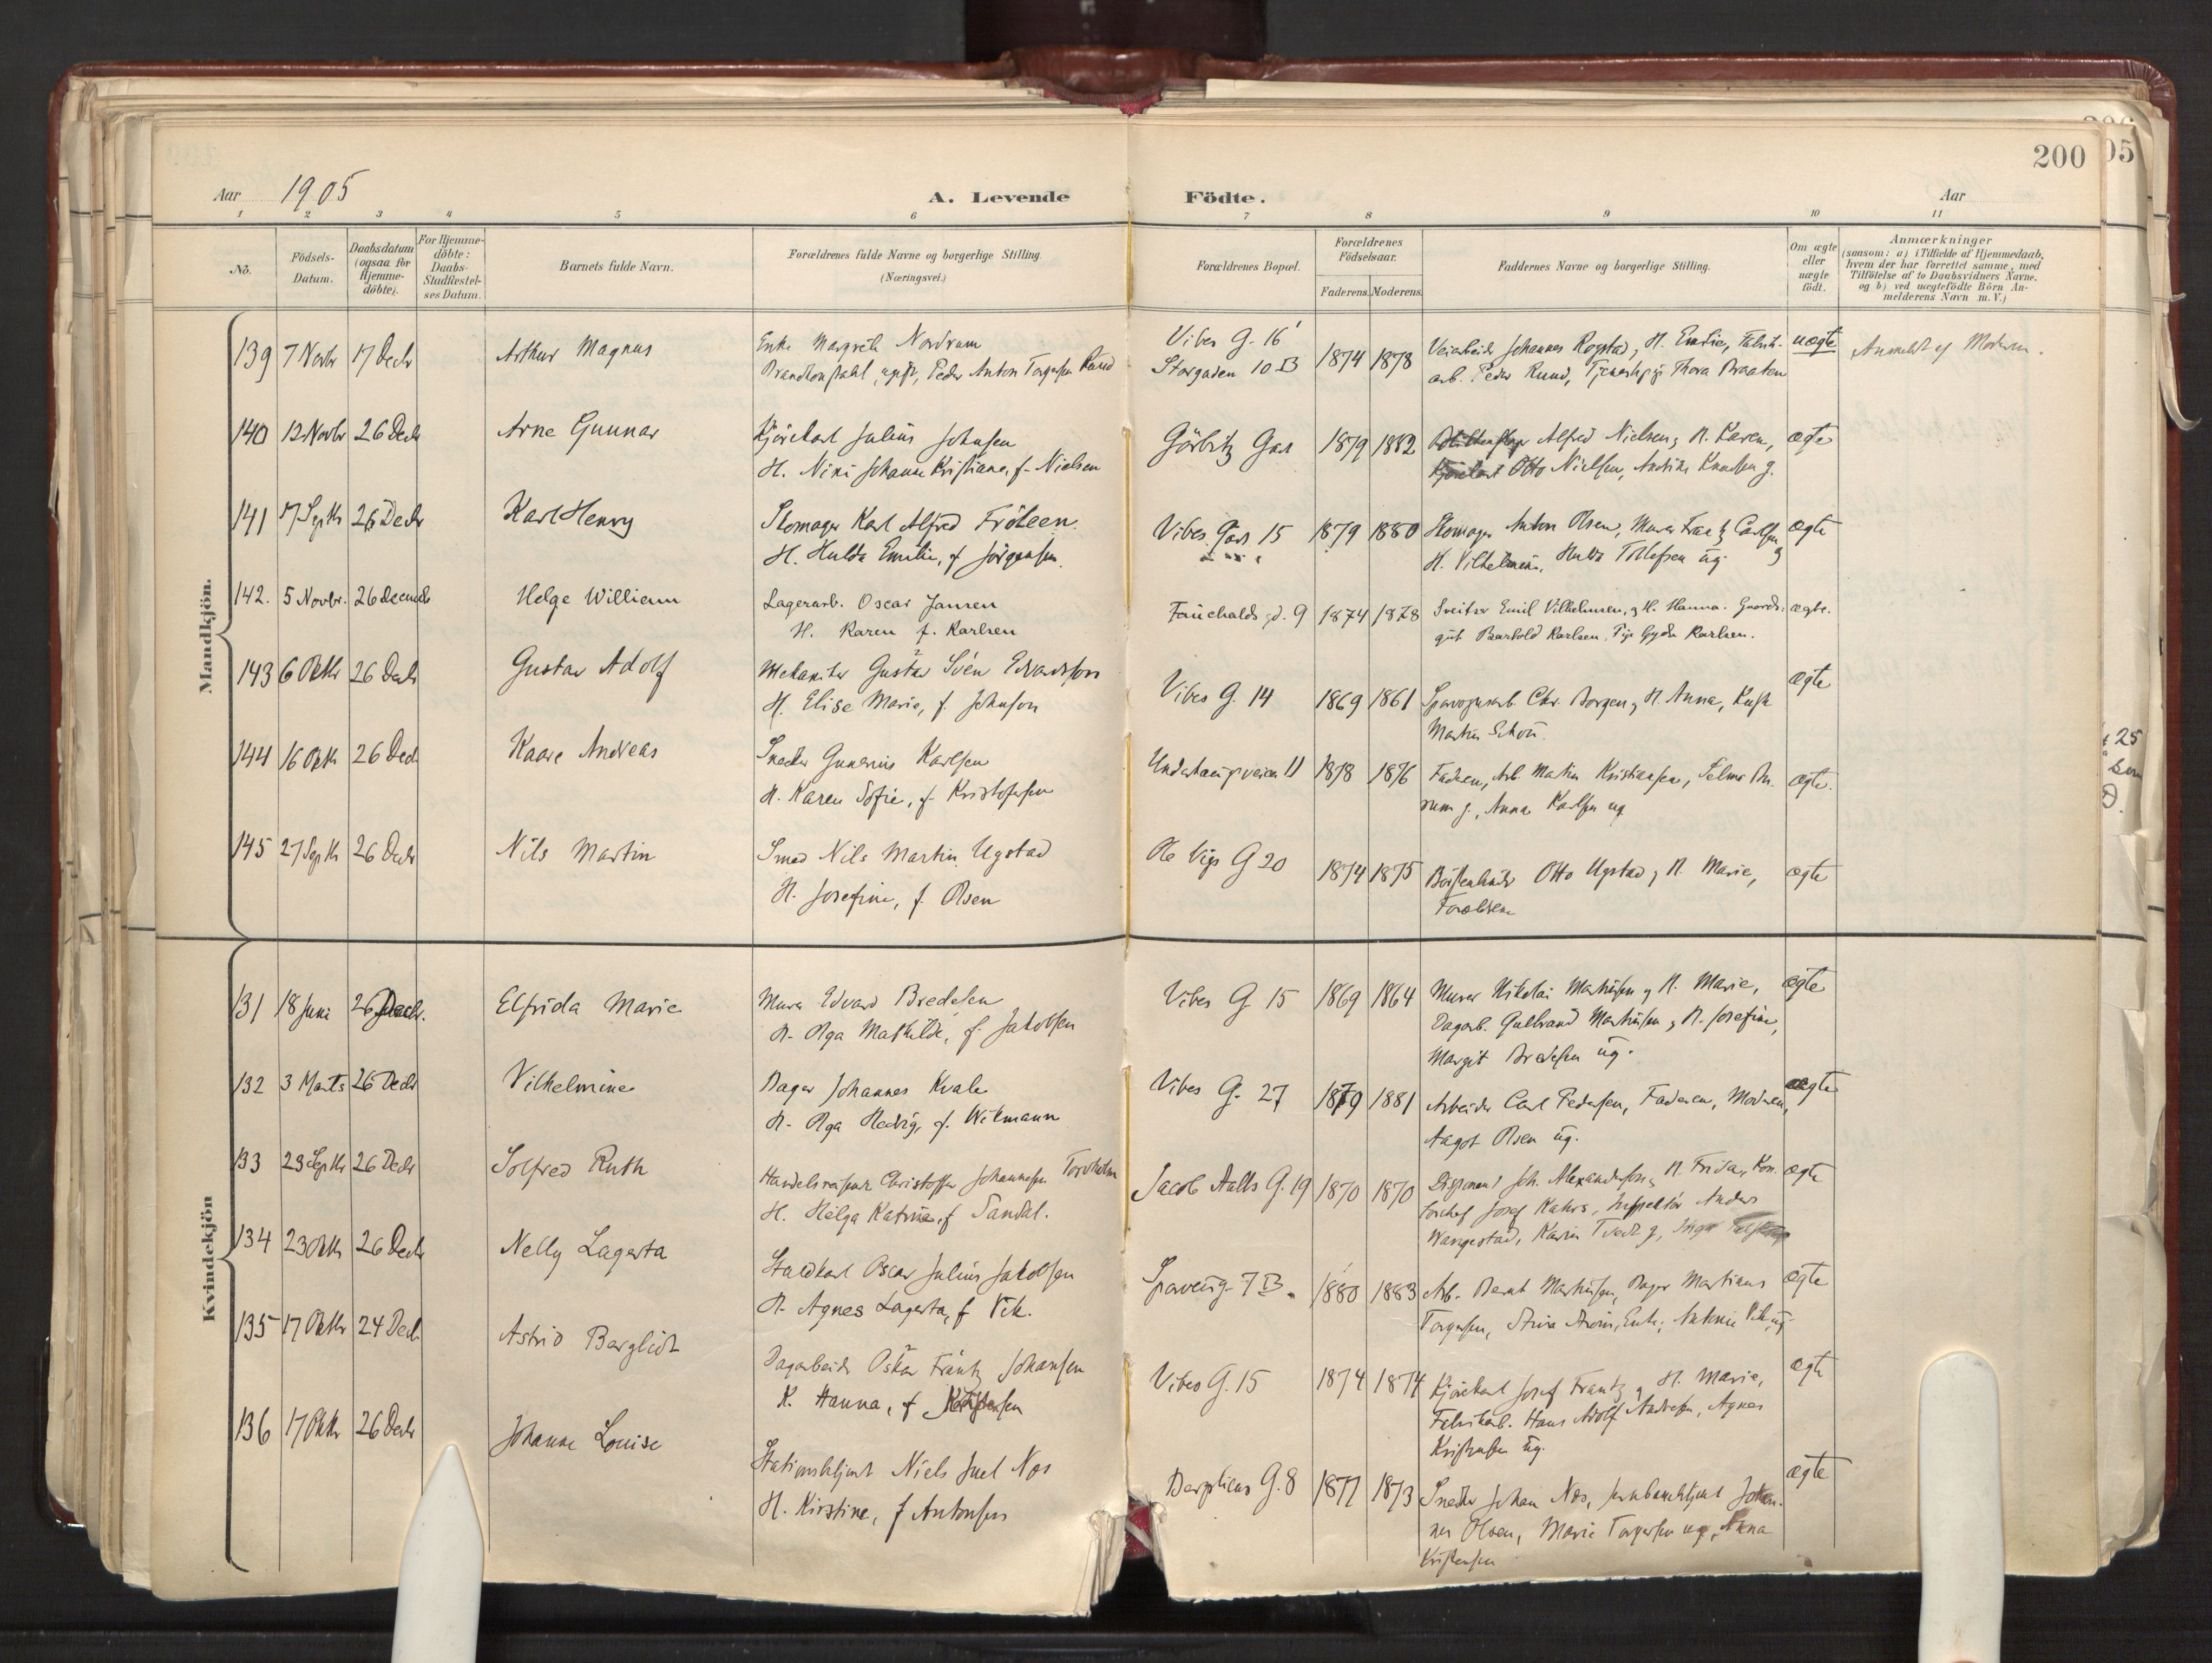 200
05
Aar 1905
A. Levende Födte.
Aar
1 2 3 4 5 6 7 8 9 10 11
Nö.
Födsels-
Datum.
Daabsdatum
(ogsaa for
Hjemme-
döbte).
For Hjemme-
döbte:
Daabs-
Stadfæstel-
ses Datum.
Barnets fulde Navn.
Forældrenes fulde Navne og borgerlige Stilling.
(Næringsvei.)
Forældrenes Bopæl.
Forældrenes
Födselsaar.
Faderens. Moderens.
Faddernes Navne og borgerlige Stilling.
Om ægte
eller
uægte
født.
Anmærkninger
(saasom: a) i Tilfælde af Hjemmedaab,
hvem der har forrettet samme, med
Tilföielse af to Daabsvidners Navne.
og b) ved uægtefödte Börn An-
melderens Navn m. V.)
Mandkjön.
139 7 Novbr 17 Decbr Arthur Magnus
Enke Nordrum
Peder Anton Torgersen Ruud
Vibes G. 16
Storgaden 10 B
1874 1878
Johannes Rogstad, H. Emilie, Fabrik-
arb. Peder Ruud, Thora Braaten
uægte
Anmeldt af Moderen.
140 12 Novbr 26 Decbr Arne Gunnar
Kjörekarl Julius Johnsen
H. Nini Johanne Kristiane, f. Nielsen
Görbitz Gad
1879 1882
Alfred Nielsen, H. Karen,
Otto Nielsen, Knudsen g.
ægte
141 17 Septbr 26 Decbr Karl Henry
Skomager Karl Alfred Fröteen.
H. Hulda Emilie, f Jörgensen.
Vibes Gad 15
1879 1880
Skomager Anton Olsen, Murer Carlsen
H. Vilhelmine, Hulda Tollefsen ug.
ægte
142. 5 Novbr. 26 Decemb Helge William
Lagerarb. Oscar Jansen
H. Karen f. Karlsen
Fauchalds gd. 9
1874 1878
Sveitser Emil Vilhelmsen, g H. Hanna. Gaards-
gut Karlsen, Pige Gyda Karlsen.
ægte.
143 6 Oktbr 26 Decbr Gustav Adolf
Mekaniker Gustav Svén Edvardsson
H. Elise Marie, f. Johnson
Vibes G. 14
1869 1861
Sporvognsarb. Chr. Borgen, H. Anna, Kusk
Martin Schou.
ægte
144 16 Oktbr 26 Decb Kaare Andreas
Snedker Gunerius Karlsen
H. Karen Sofie, f. Kristofersen
Underhaugsveien 11
1878 1876
Faderen, Arb. Martin Kristiansen, Selma
g., Anna Karlsen ug
ægte.
145 27 Septbr 26 Decbr Nils Martin
Smed Nils Martin Ugstad
H. Josefine, f. Olsen
Ole Vigs G 20
1874 1875
Otto Ugstad, H. Marie,
Forældrene
ægte
Kvindekjön
131 18 Juni 26 Decbr. Elfrida Marie
Murer Edvard Bredesen
H. Olga Mathilde, f. Jakobsen
Vibes G 15
1869 1864
Murer Nikolai Mathisen g H. Marie,
Dagarb. Gulbrand Mathisen, H. Josefine,
Margit Bredesen ug.
ægte
132 3 Marts 26 Decbr Vilhelmine
Bager Johannes Kvale
H. Olga Hedvig, f. Wikmann
Vibes G. 27
1879 1881
Arbeider Carl Pedersen, Faderen, Moderen,
Aagot Olsen ug.
ægte
133 23 Septbr 26 Decbr Solfred Ruth
Handelsreisende Christoffer Johannesen Torsholm
H. Helga Katrine, f Sandal.
Jacob Aalls G. 19
1870 1870
Disponent Joh. Alexanderson, H. Frida, Kon-
torchef Josef Kahrs, Inspektör Anders
Wangestad, Karin Tvedt g, Inga
ægte
134 23 Oktbr 26 Decbr Nelly Lagerta
Staldkarl Oscar Julius Jakobsen
H. Agnes Lagerta, f Vik.
Sporveisg. 7 B.
1880 1883
Arb. Bernt Mathisen, Bager Martinus
Torgersen, Enke, Antonie Vik ug.
ægte
135 17 Oktbr 24 Decb. Astrid Bergliot
Dagarbeider Oskar Frantz Johansen
H. Hanna, f
Vibes G. 15
1874 1874
Kjörekarl Josef Frantz g H. Marie,
Fabrikarb. Hans Adolf Andresen, Agnes
Kristiansen ug.
ægte
136 17 Oktbr 26 Decbr Johanne Louise
Stationsbetjent Niels Juel Næs
H. Kirstine, f Antonsen
Berglieus G. 8
1877 1873
Snedker Johan Næs, Jernbanebetjent Johan-
nes Olsen, Marie Torgersen ug, Anna
Kristensen
ægte
25